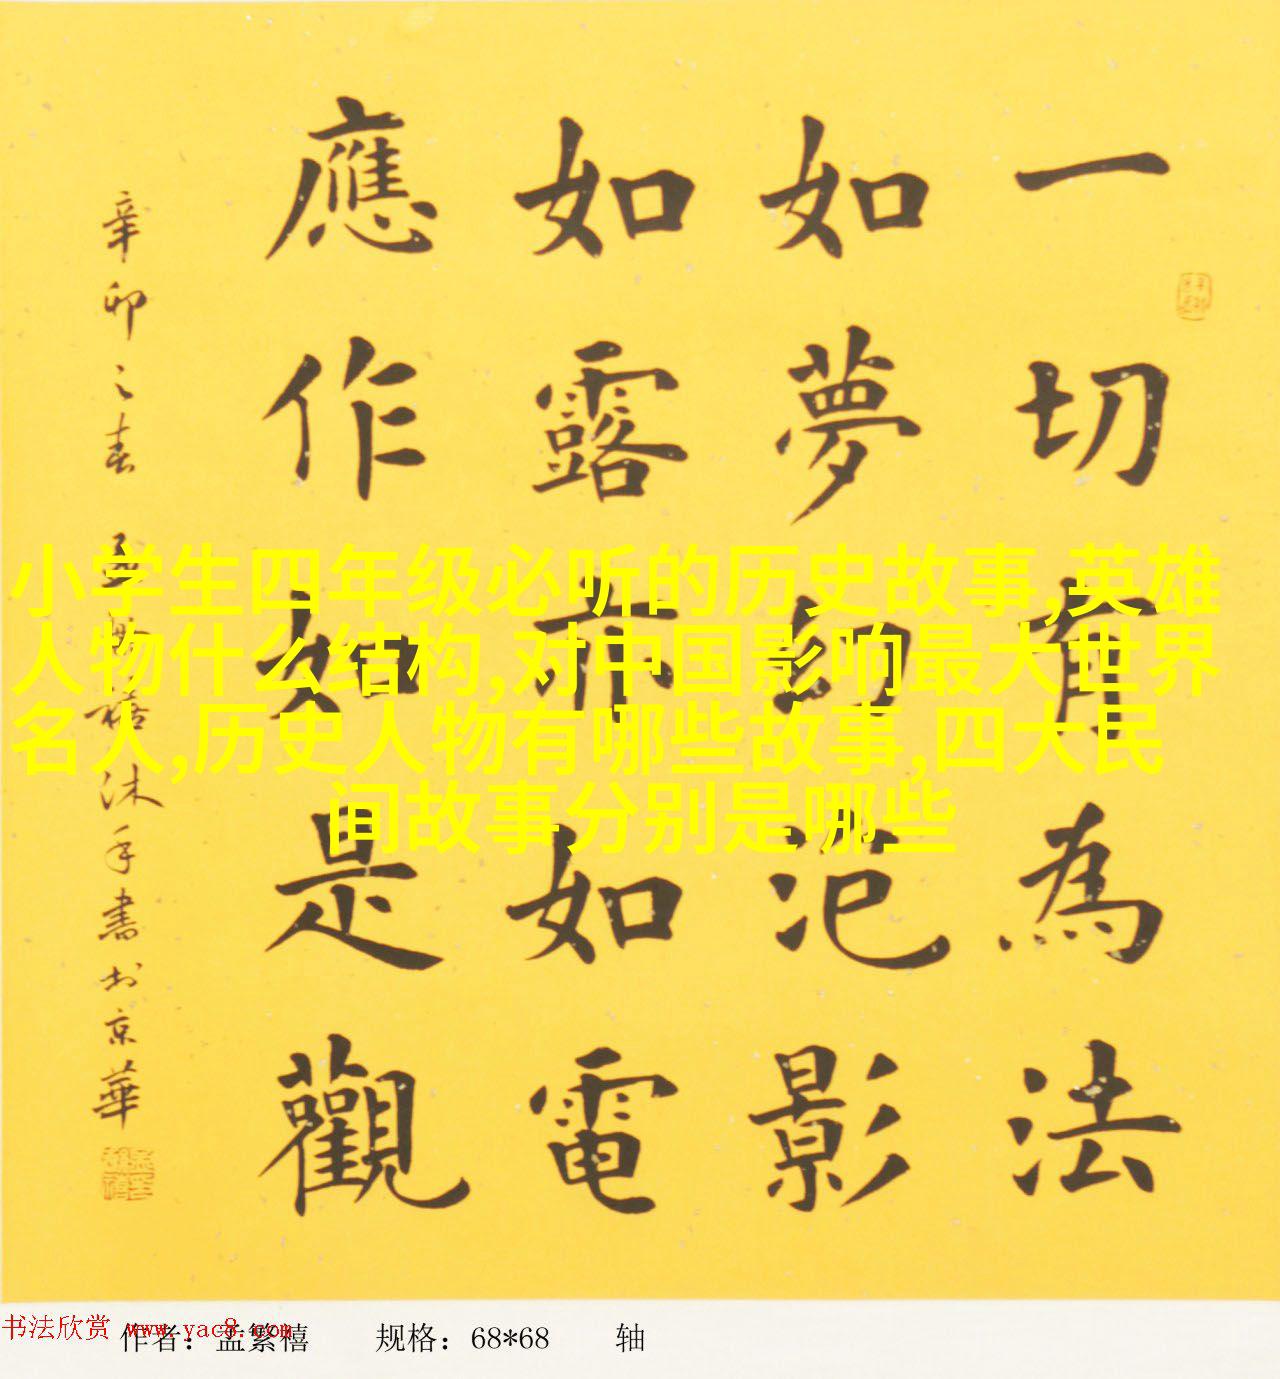 一切有為法
如夢幻泡影
如露亦如電
應作如是觀
辛卯之春 孟繁禧沐手書於京華
小学生四年级必听的历史故事,英雄
人物什么结构,对中国影响最大世界
名人,历史人物有哪些故事,四大民
间故事分别是哪些
书法欣赏 www.yac8.com
作者：孟繁禧 规格：68*68 轴